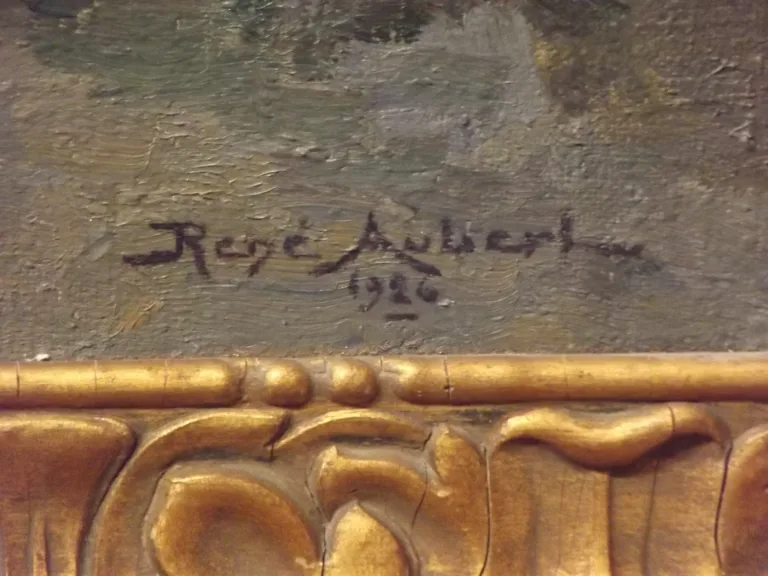 René Aubert
1926